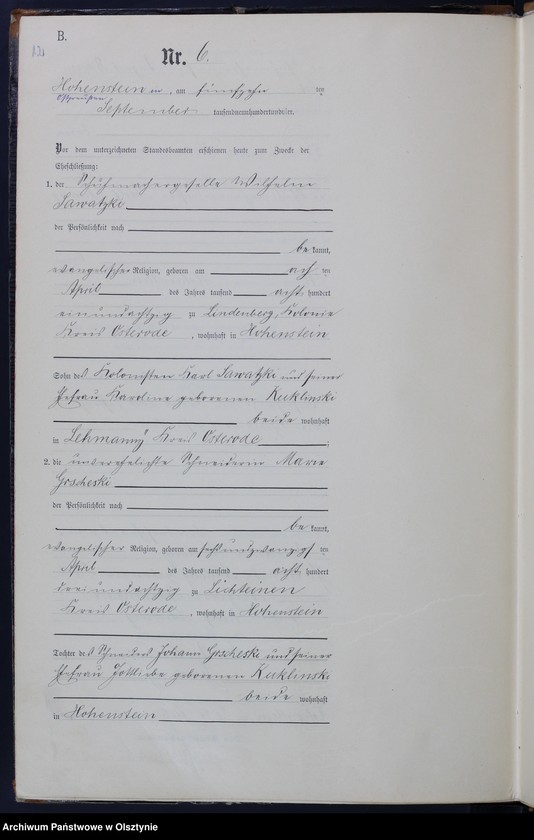 B.
121
Nr. 6.
Hohenstein, am fünfzehn ten
Ostpreußen
September tausendneunhundertundvier.
Vor dem unterzeichneten Standesbeamten erschienen heute zum Zwecke der
Eheschließung:
1. der Schuhmachergeselle Wilhelm
Sawatzki
der Persönlichkeit nach
be kannt,
evangelischer Religion, geboren am acht ten
April des Jahres tausend acht hundert
einundachtzig zu Lindenberg, Kolonie
Kreis Osterode, wohnhaft in Hohenstein
Sohn des Kolonisten Karl Sawatzki und seiner
Ehefrau Karoline geborenen Kuklinski
beide wohnhaft
in Kreis Osterode;
2. die unverehelichte Schneiderin Marie
Grscheski
der Persönlichkeit nach
be kannt,
evangelischer Religion, geboren am sechsundzwanzigs ten
April des Jahres tausend acht hundert
dreiundachtzig zu Lichteinen
Kreis Osterode, wohnhaft in Hohenstein
Tochter des Schneiders Johann Grscheski und seiner
Ehefrau Gottliebe geborenen Kuklinski
beide wohnhaft
in Hohenstein
Archiwum Państwowe w Olsztynie